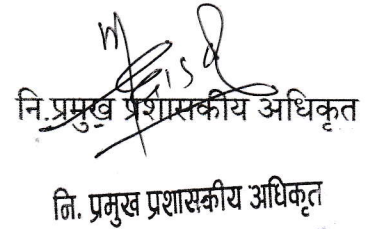 नि.प्रमुख प्रशासकीय अधिकृत
नि. प्रमुख प्रशासकीय अधिकृत